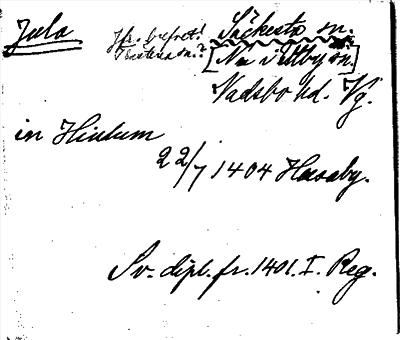 Jula
Jfr. brefvet! Säckestad sn.
[Nu i Ullby sn.]
Vadsbo hd. Vg.
in Hiulum
22/7 1404 Hassaby.
Sv. dipl. fr. 1401. I. Reg.